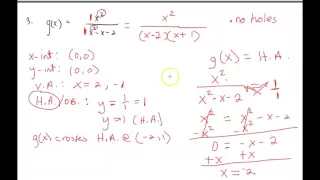 3. g(x) = x²/(x² - x - 2) = x²/((x-2)(x+1))
• no holes
x-int: (0,0)
y-int: (0,0)
V.A.: x = 2, -1
H.A./OB.: y = 1/1 = 1
y = 1 (H.A.)
g(x) crosses H.A. @ (-2,1)
g(x) = H.A.
x²/(x² - x - 2) = 1/1
x² = x² - x - 2
-x² -x²
0 = -x - 2
+x +x
x = -2